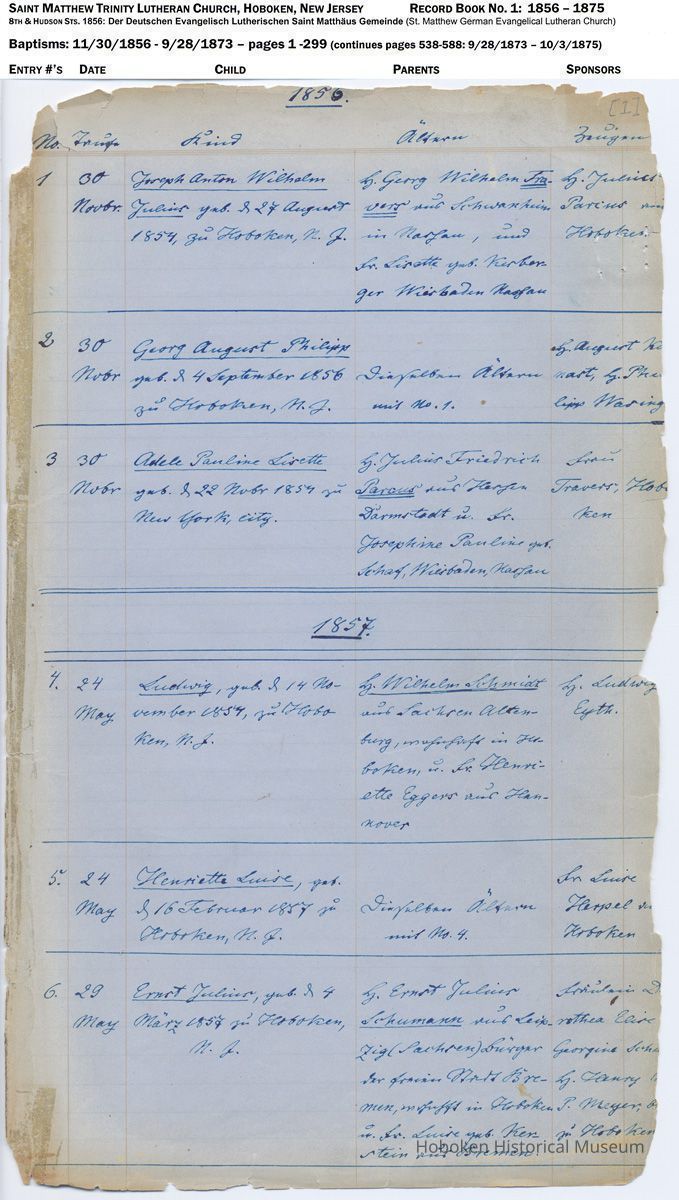 SAINT MATTHEW TRINITY LUTHERAN CHURCH, HOBOKEN, NEW JERSEY RECORD BOOK NO. 1: 1856 – 1875
8TH & HUDSON STS. 1856: Der Deutschen Evangelisch Lutherischen Saint Matthäus Gemeinde (St. Matthew German Evangelical Lutheran Church)
Baptisms: 11/30/1856 - 9/28/1873 – pages 1 -299 (continues pages 538-588: 9/28/1873 – 10/3/1875)
ENTRY #'S DATE CHILD PARENTS SPONSORS
1856.
[1]
No. Taufe Kind Ältern Zeugen
1 30
Novbr.
Joseph Anton Wilhelm
Julius geb. d 27 August
1854, zu Hoboken, N. J.
H. Georg Wilhelm Tra-
vers aus Schwanheim
in Nassau, und
Fr. Lisette geb. Kerber-
ger Wiesbaden Nassau
H. Julius
Hoboken
2 30
Nobr
Georg August Philipp
geb. d 4 September 1856
zu Hoboken, N. J.
Dieselben Ältern
mit No. 1.
H. August
nast, H. Phi
lipp
3 30
Nobr
Adele Pauline Lisette
geb. d 22 Nobr 1854 zu
New York, City.
H. Julius Friedrich
Pareus aus Hessen
Darmstadt u. Fr.
Josephine Pauline geb.
Schaf, Wiesbaden, Nassau
Frau
Travers, Hobo
ken
1857.
4. 24
May
Ludwig, geb. d 14 No-
vember 1854, zu Hobo
ken, N. J.
H. Wilhelm Schmidt
aus Sachsen Alten-
burg, wohnhaft in Ho-
boken, u. Fr. Henri-
ette Eggers aus Han-
nover
H. Ludwig
Eyth.
5. 24
May
Henriette Luise, geb.
d 16 Februar 1857 zu
Hoboken, N. J.
Dieselben Ältern
mit No. 4.
Fr. Luise
Hoboken
6. 29
May
Ernst Julius, geb. d 4
März 1857 zu Hoboken,
N. J.
H. Ernst Julius
Schumann aus Leip-
zig (Sachsen) Bürger
der freien Stadt Bre-
men, wohnhft in Hoboken
u. Fr. Luise geb. Ken-
stein aus Bremen.
Fräulein D
rothea Elise
Georgine Sch
H. Henry
P. Meyer,
zu Hoboken
Hoboken Historical Museum